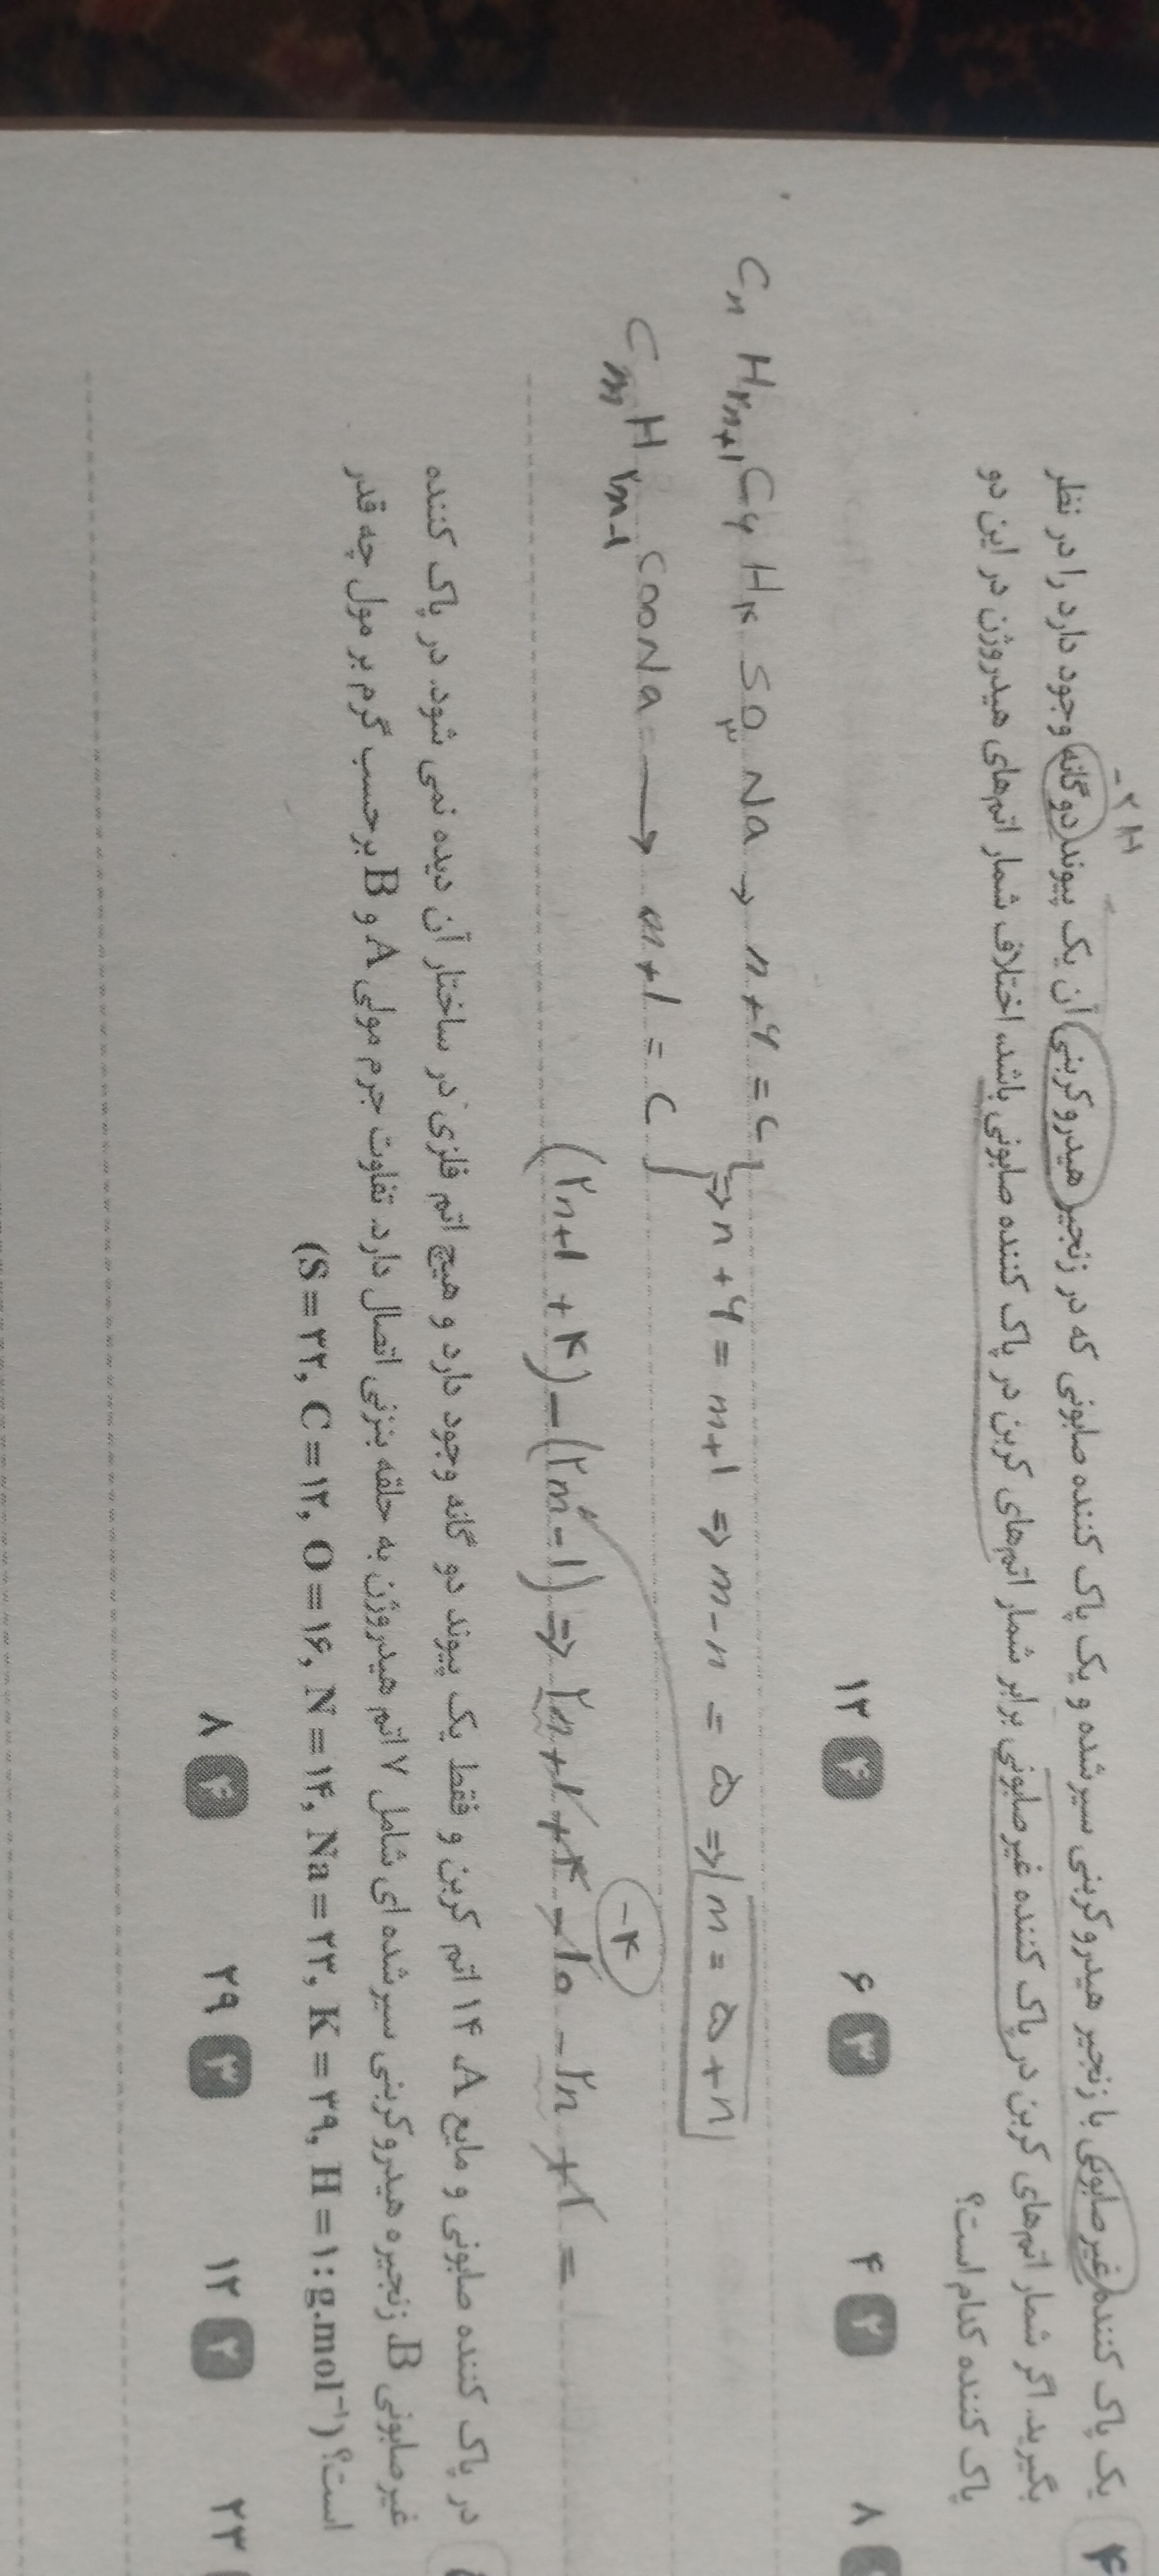 ۴ یک پاک کننده غیرصابونی با زنجیر هیدروکربنی سیرشده و یک پاک کننده صابونی که در زنجیر هیدروکربنی آن یک پیوند دوگانه وجود دارد را در نظر
-۲H
بگیرید. اگر شمار اتم‌های کربن در پاک کننده غیرصابونی برابر شمار اتم‌های کربن در پاک کننده صابونی باشد، اختلاف شمار اتم‌های هیدروژن در این دو
پاک کننده کدام است؟
۸ ۲ ۴ ۳ ۶ ۴ ۱۲
CnH۲n+۱C۶H۴SO۳Na → n+۶=C } ⇒ n+۶=m+۱ ⇒ m-n=۵ ⇒ m=۵+n
CmH۲m-۱COONa → m+۱=C
-۴
(۲n+۱+۴)-(۲m-۱) ⇒ ۲n+۱+۴-۱۰-۲n+۱=
در پاک کننده صابونی و مایع A، ۱۴ اتم کربن و فقط یک پیوند دو گانه وجود دارد و هیچ اتم فلزی در ساختار آن دیده نمی شود. در پاک کننده
غیرصابونی B، زنجیره هیدروکربنی سیرشده ای شامل ۷ اتم هیدروژن به حلقه بنزنی اتصال دارد. تفاوت جرم مولی A و B برحسب گرم بر مول چه قدر
است؟ (S=۳۲, C=۱۲, O=۱۶, N=۱۴, Na=۲۳, K=۳۹, H=۱: g.mol⁻¹)
۲۳ ۲ ۱۲ ۳ ۲۹ ۴ ۸